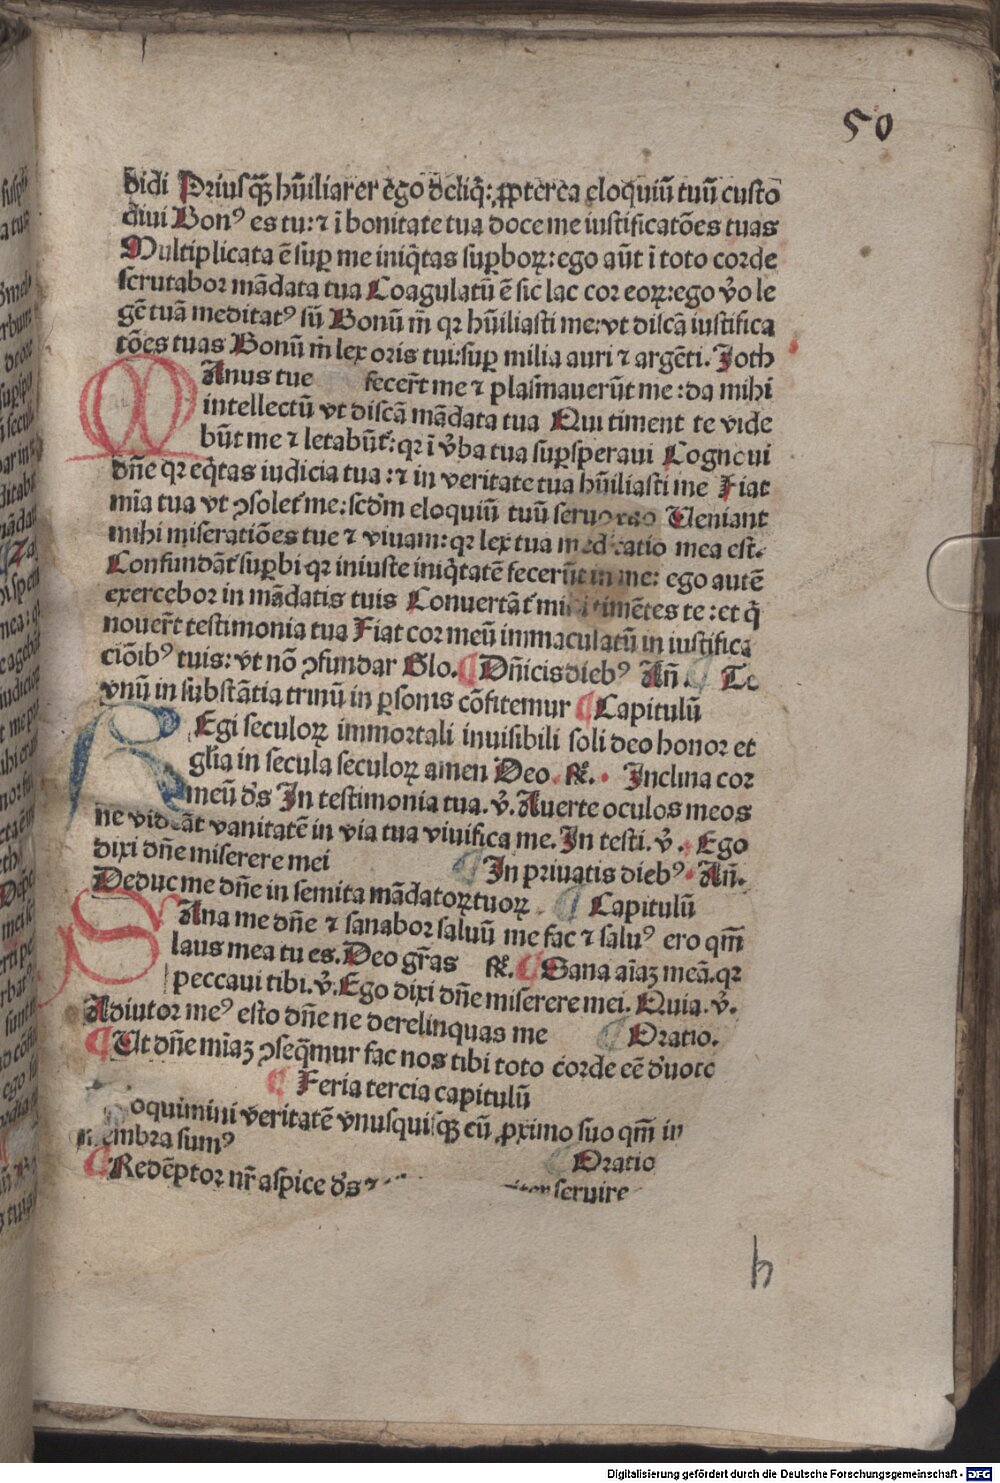 50
didi Priusq̃ꝫ hũiliarer ego deliq̃: ꝓpterea eloquiũ tuũ custo
diui Bonꝰ es tu: ⁊ ĩ bonitate tua doce me iustificatões tuas
Multiplicata ẽ suꝑ me iniq̃tas suꝑboꝝ: ego aũt ĩ toto corde
scrutabor mãdata tua Coagulatũ ẽ sic lac cor eoꝝ: ego ṽo le
gẽ tuã meditatꝰ sũ Bonũ m̃ qꝛ hũiliasti me: vt discã iustifica
tões tuas Bonũ m̃ lex oris tui: suꝑ milia auri ⁊ argẽti. Joth
MAnus tue fecer̃t me ⁊ plasmauerũt me: da mihi
intellectũ vt discã mãdata tua Qui timent te vide
bũt me ⁊ letabũt᷑: qꝛ ĩ ṽba tua suꝑsperaui Cognoui
dñe qꝛ eq̃tas iudicia tua: ⁊ in veritate tua hũiliasti me Fiat
mĩa tua vt ↄsolet᷑ me: scd̃m eloquiũ tuũ seruo tuo Ueniant
mihi miseratiões tue ⁊ viuam: qꝛ lex tua meditatio mea est.
Confundãt᷑ suꝑbi qꝛ iniuste iniq̃tatẽ fecerũt in me: ego autẽ
exercebor in mãdatis tuis Conuertãt᷑ mihi timẽtes te: et q̃
nouer̃t testimonia tua Fiat cor meũ immaculatũ in iustifica
ciõibꝰ tuis: vt nõ ↄfundar Glo. ¶ Dñicis diebꝰ Añ. ¶ Te
vnũ in substãtia trinũ in ꝑsonis cõfitemur ¶ Capitulũ
REgi seculoꝝ immortali inuisibili soli deo honor et
glĩa in secula seculoꝝ amen Deo. ꝶ. Inclina cor
meũ d̃s In testimonia tua. ꝟ. Auerte oculos meos
ne videãt vanitatẽ in via tua viuifica me. In testi. ꝟ. Ego
dixi dñe miserere mei ¶ In priuatis diebꝰ Añ.
Deduc me dñe in semita mãdatoꝝ tuoꝝ. ¶ Capitulũ
SAna me dñe ⁊ sanabor saluũ me fac ⁊ saluꝰ ero qm̃
laus mea tu es. Deo gr̃as ꝶ. ¶ Sana aĩaꝫ meã. qꝛ
peccaui tibi. ꝟ. Ego dixi dñe miserere mei. Quia. ꝟ.
Adiutor meꝰ esto dñe ne derelinquas me ¶ Oratio.
¶ Ut dñe mĩaꝫ ↄseq̃mur fac nos tibi toto corde eẽ d̃uoto
¶ Feria tercia capitulũ
oquimini veritatẽ vnusquisqꝫ cũ ꝓximo suo qm̃ in
membra sumꝰ
¶ Oratio
¶ Redẽptor nr̃ aspice d̃s ⁊ seruire
h
Digitalisierung gefördert durch die Deutsche Forschungsgemeinschaft - DFG